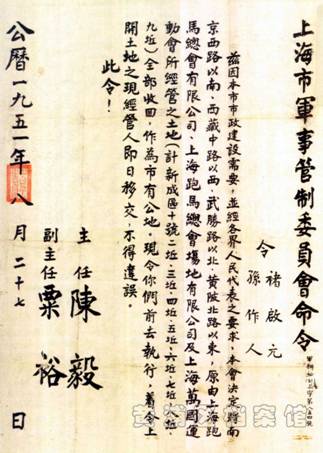 上海市軍事管制委員會命令
令 褚啟元
孫作人
茲因本市市政建設需要，並經各界人民代表之要求，本會決定將南
京西路以南、西藏中路以西、武勝路以北、黃陂北路以東，原由上海跑
馬總會有限公司、上海跑馬總會場地有限公司及上海萬國運
動會所經管之土地（計新成區十號二坵、三坵、四坵、五坵、六坵、七坵、八坵、
九坵）全部收回，作為市有公地。現令你們前去執行，着令上
開土地之現經管人即日移交，不得違誤。
此令！
主任 陳毅
副主任 粟裕
公曆一九五一年八月二十七日